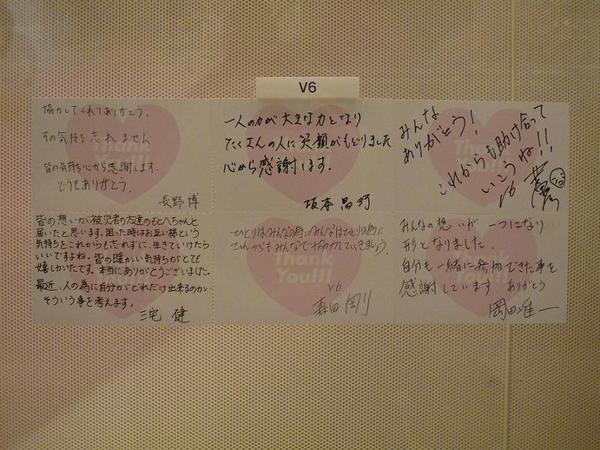 V6
協力してくれてありがとう。
その気持ち忘れません
皆の気持ち心から感謝します。
どうもありがとう。
長野 博
一人の力が大きな力となり
たくさんの人に笑顔がもどりました
心から感謝します。
坂本昌行
みんな
ありがとう!
これからも助け合って
いこうね!!
V6
皆の想いが被災者の友達のもとへちゃんと
届いたと思います。困った時はお互い様という
気持ちをこれからも忘れずに、生きていけたら
いいですね。皆の暖かい気持ちがとても
嬉しかったです。本当にありがとうございました。
最近、人の為に自分がどれだけ出来るのか
そういう事を考えます。
三宅 健
一人はみんなの為に、みんなは一人の為に
これからもみんなで協力していきましょう
V6
森田剛
みんなの想いが 一つになり
形となりました。
自分も一緒に参加できた事を
感謝しています ありがとう
岡田准一
Thank
You!!!